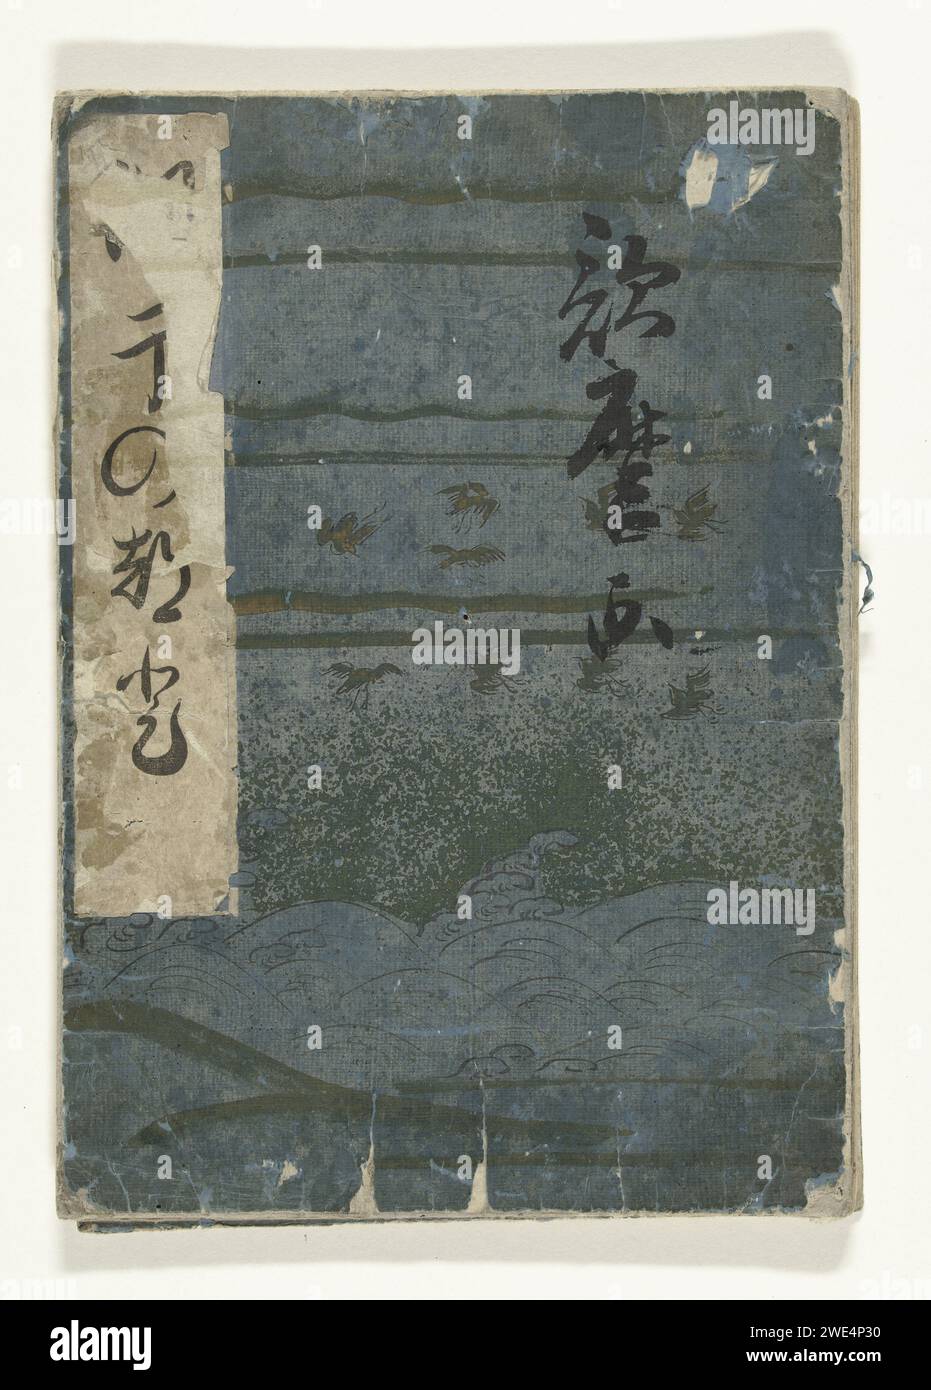 歌麿画
干の都登
alamy
alamy
alamy
alamy
Image ID: 2WE4P30
www.alamy.com